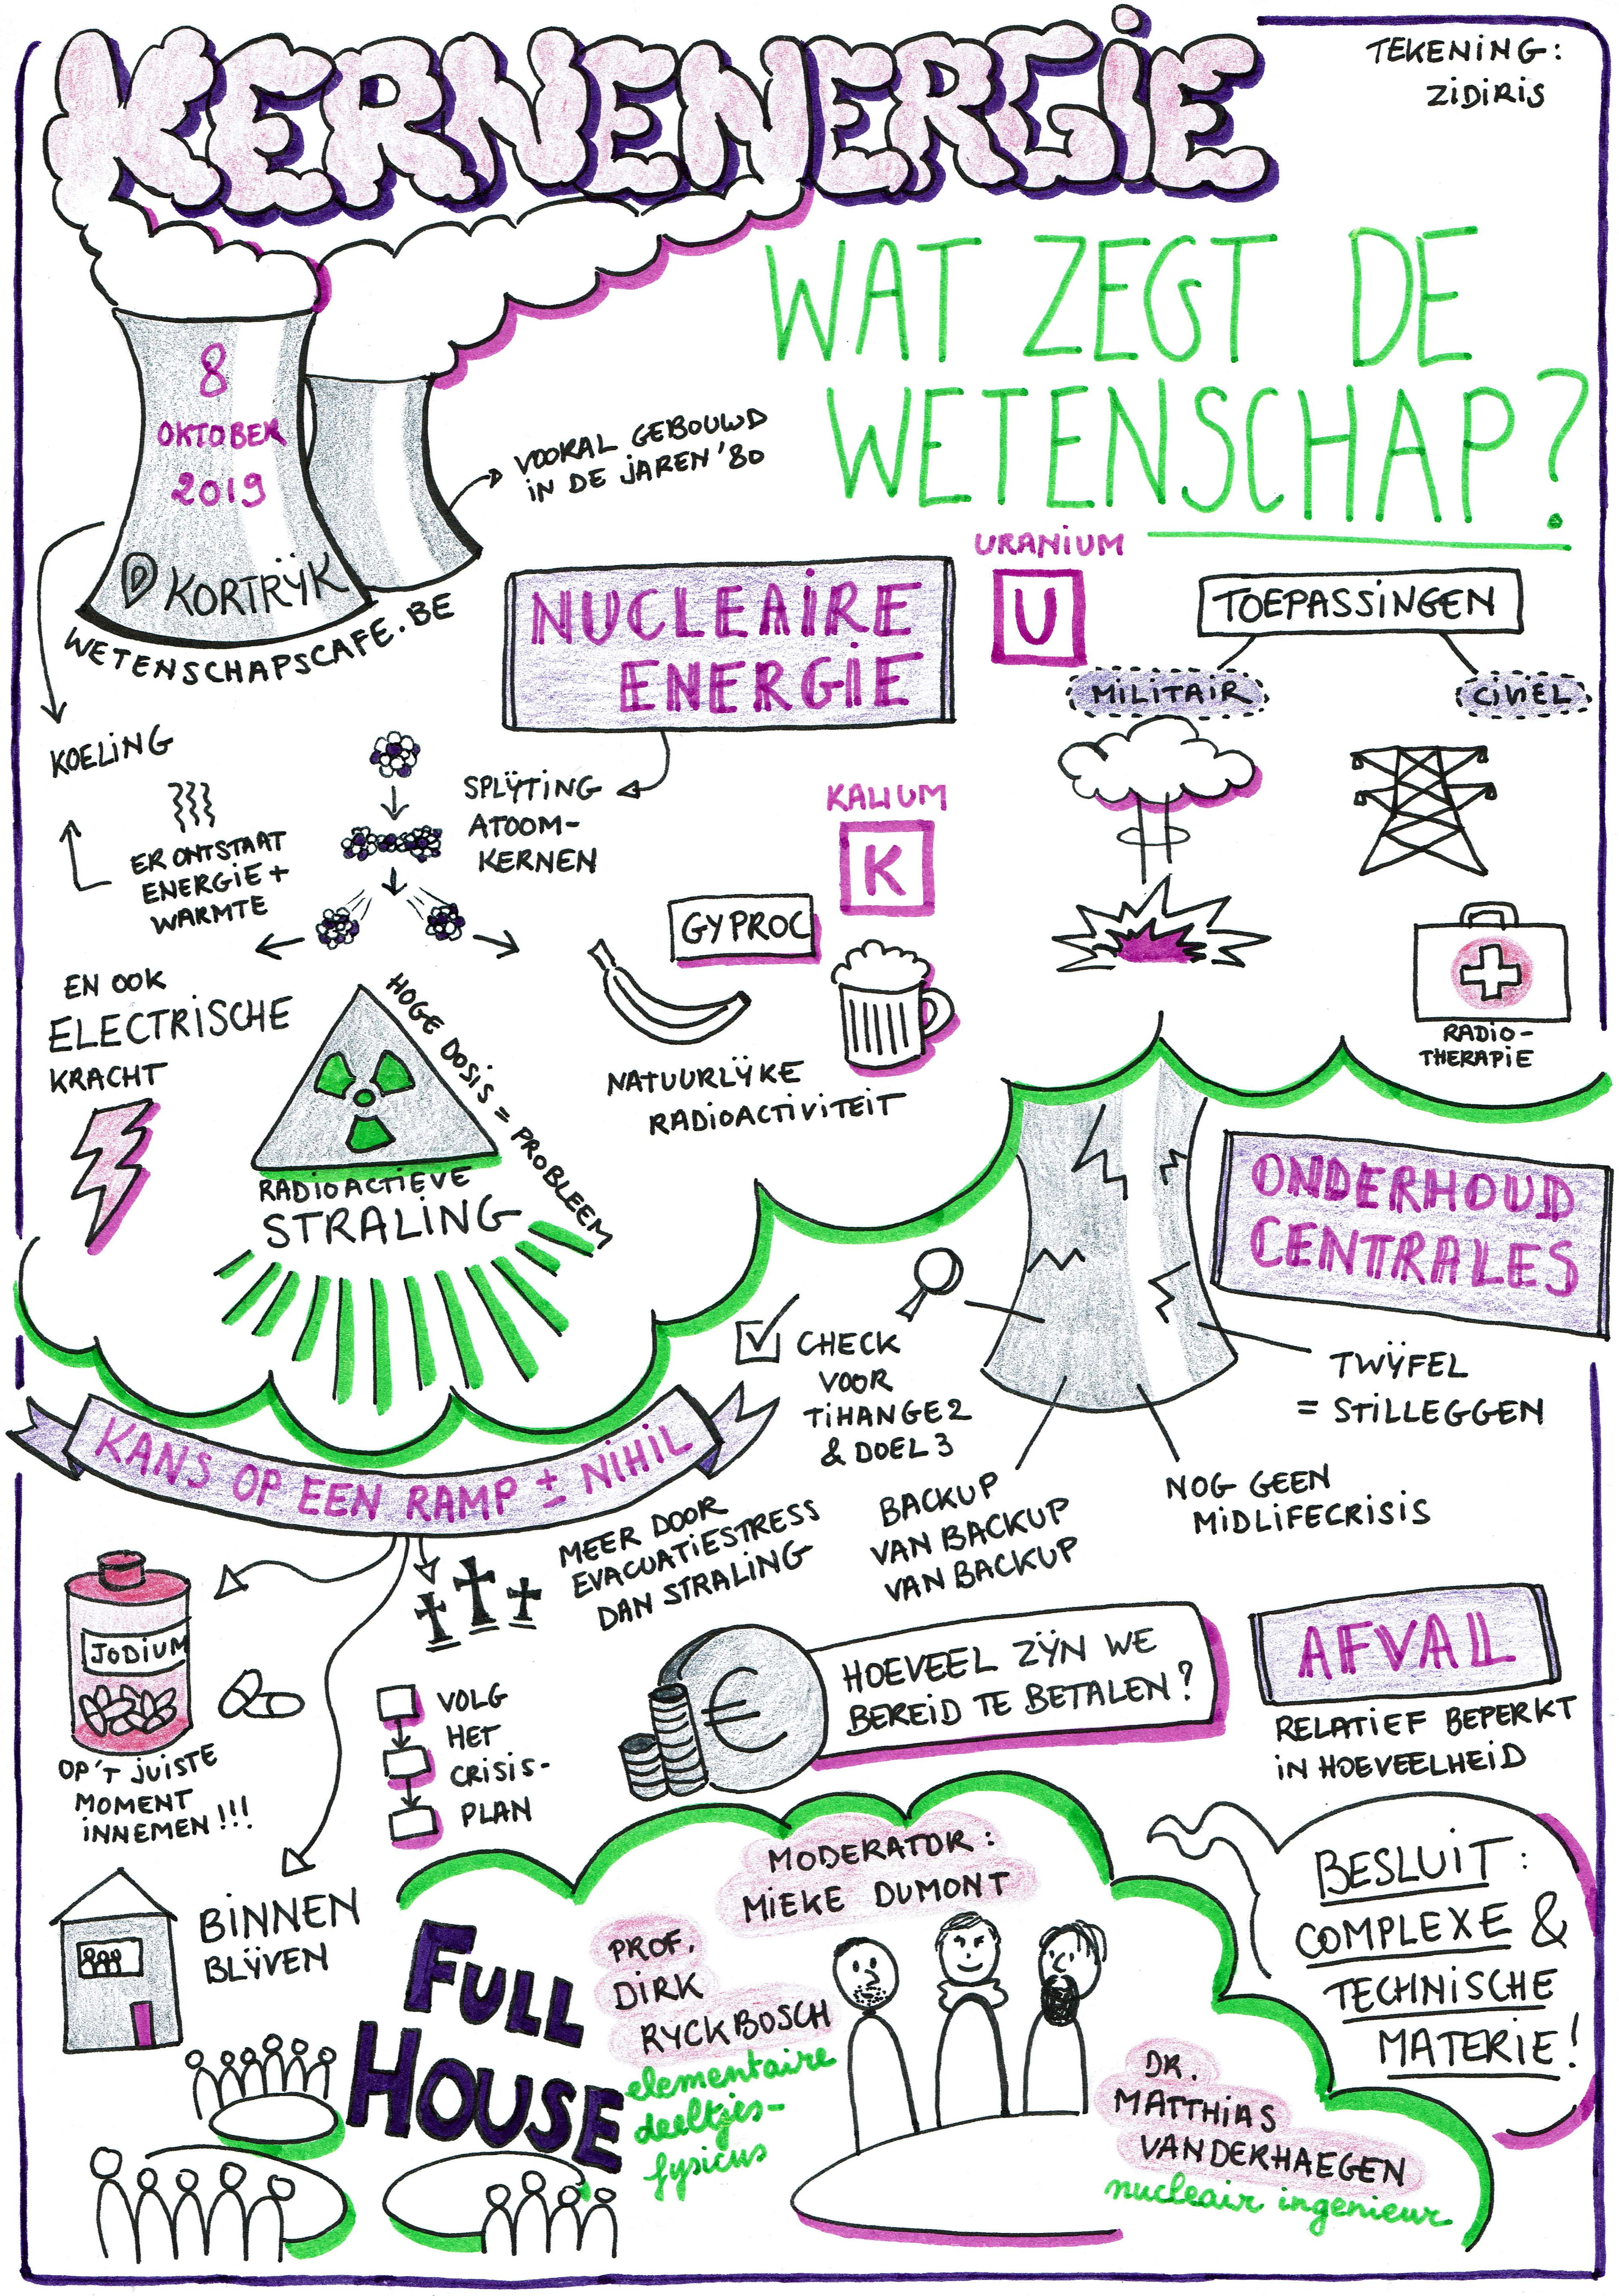 KERNENERGIE
TEKENING:
ZIDIRIS
WAT ZEGT DE
WETENSCHAP?
8
OKTOBER
2019
KORTRIJK
WETENSCHAPSCAFE.BE
VOORAL GEBOUWD
IN DE JAREN '80
NUCLEAIRE
ENERGIE
URANIUM
U
TOEPASSINGEN
MILITAIR
CIVIEL
KOELING
ER ONTSTAAT
ENERGIE +
WARMTE
SPLIJTING
ATOOM-
KERNEN
KALIUM
K
GYPROC
NATUURLIJKE
RADIOACTIVITEIT
RADIO-
THERAPIE
EN OOK
ELECTRISCHE
KRACHT
HOGE DOSIS = PROBLEEM
RADIOACTIEVE
STRALING
ONDERHOUD
CENTRALES
CHECK
VOOR
TIHANGE 2
& DOEL 3
TWIJFEL
= STILLEGGEN
BACKUP
VAN BACKUP
VAN BACKUP
NOG GEEN
MIDLIFECRISIS
KANS OP EEN RAMP ± NIHIL
MEER DOOR
EVACUATIESTRESS
DAN STRALING
JODIUM
OP'T JUISTE
MOMENT
INNEMEN!!!
VOLG
HET
CRISIS-
PLAN
BINNEN
BLIJVEN
€
HOEVEEL ZIJN WE
BEREID TE BETALEN?
AFVAL
RELATIEF BEPERKT
IN HOEVEELHEID
FULL
HOUSE
MODERATOR:
MIEKE DUMONT
PROF.
DIRK
RYCKBOSCH
elementaire
deeltjes-
fysicus
DR.
MATTHIAS
VANDERHAEGEN
nucleair ingenieur
BESLUIT:
COMPLEXE &
TECHNISCHE
MATERIE!